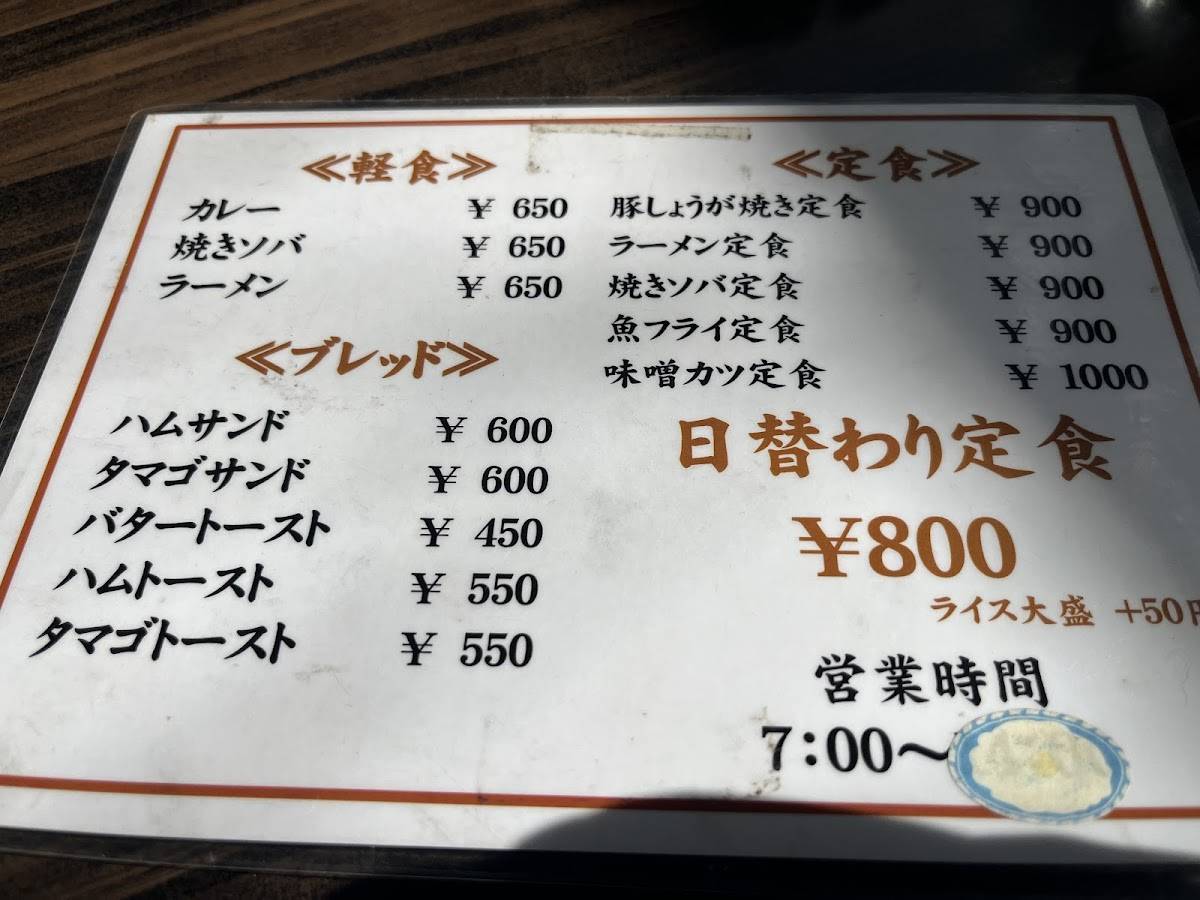 ≪軽食≫
カレー ¥ 650
焼きソバ ¥ 650
ラーメン ¥ 650
≪ブレッド≫
ハムサンド ¥ 600
タマゴサンド ¥ 600
バタートースト ¥ 450
ハムトースト ¥ 550
タマゴトースト ¥ 550
≪定食≫
豚しょうが焼き定食 ¥ 900
ラーメン定食 ¥ 900
焼きソバ定食 ¥ 900
魚フライ定食 ¥ 900
味噌カツ定食 ¥ 1000
日替わり定食
¥800
ライス大盛 +50円
営業時間
7:00〜